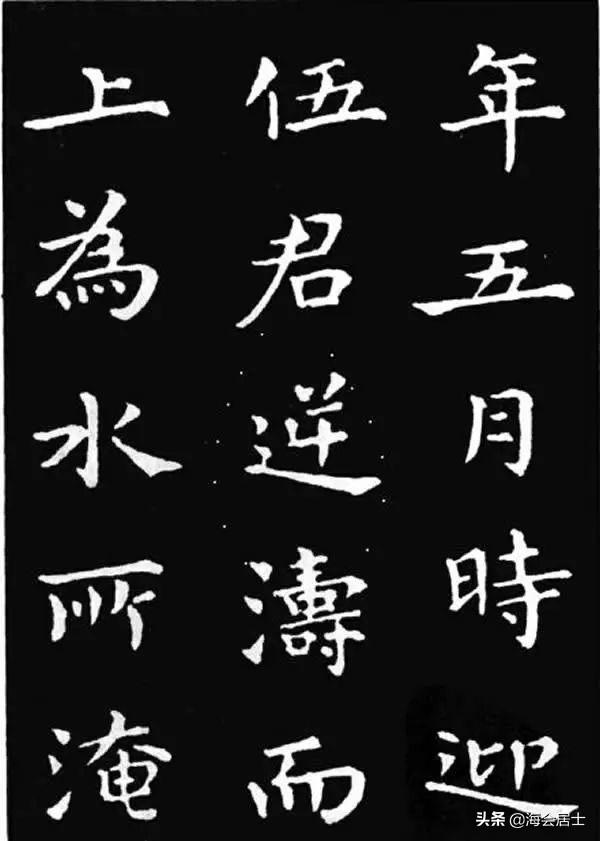 年五月時迎
伍君逆濤而
上為水所淹
头条 @海会居士